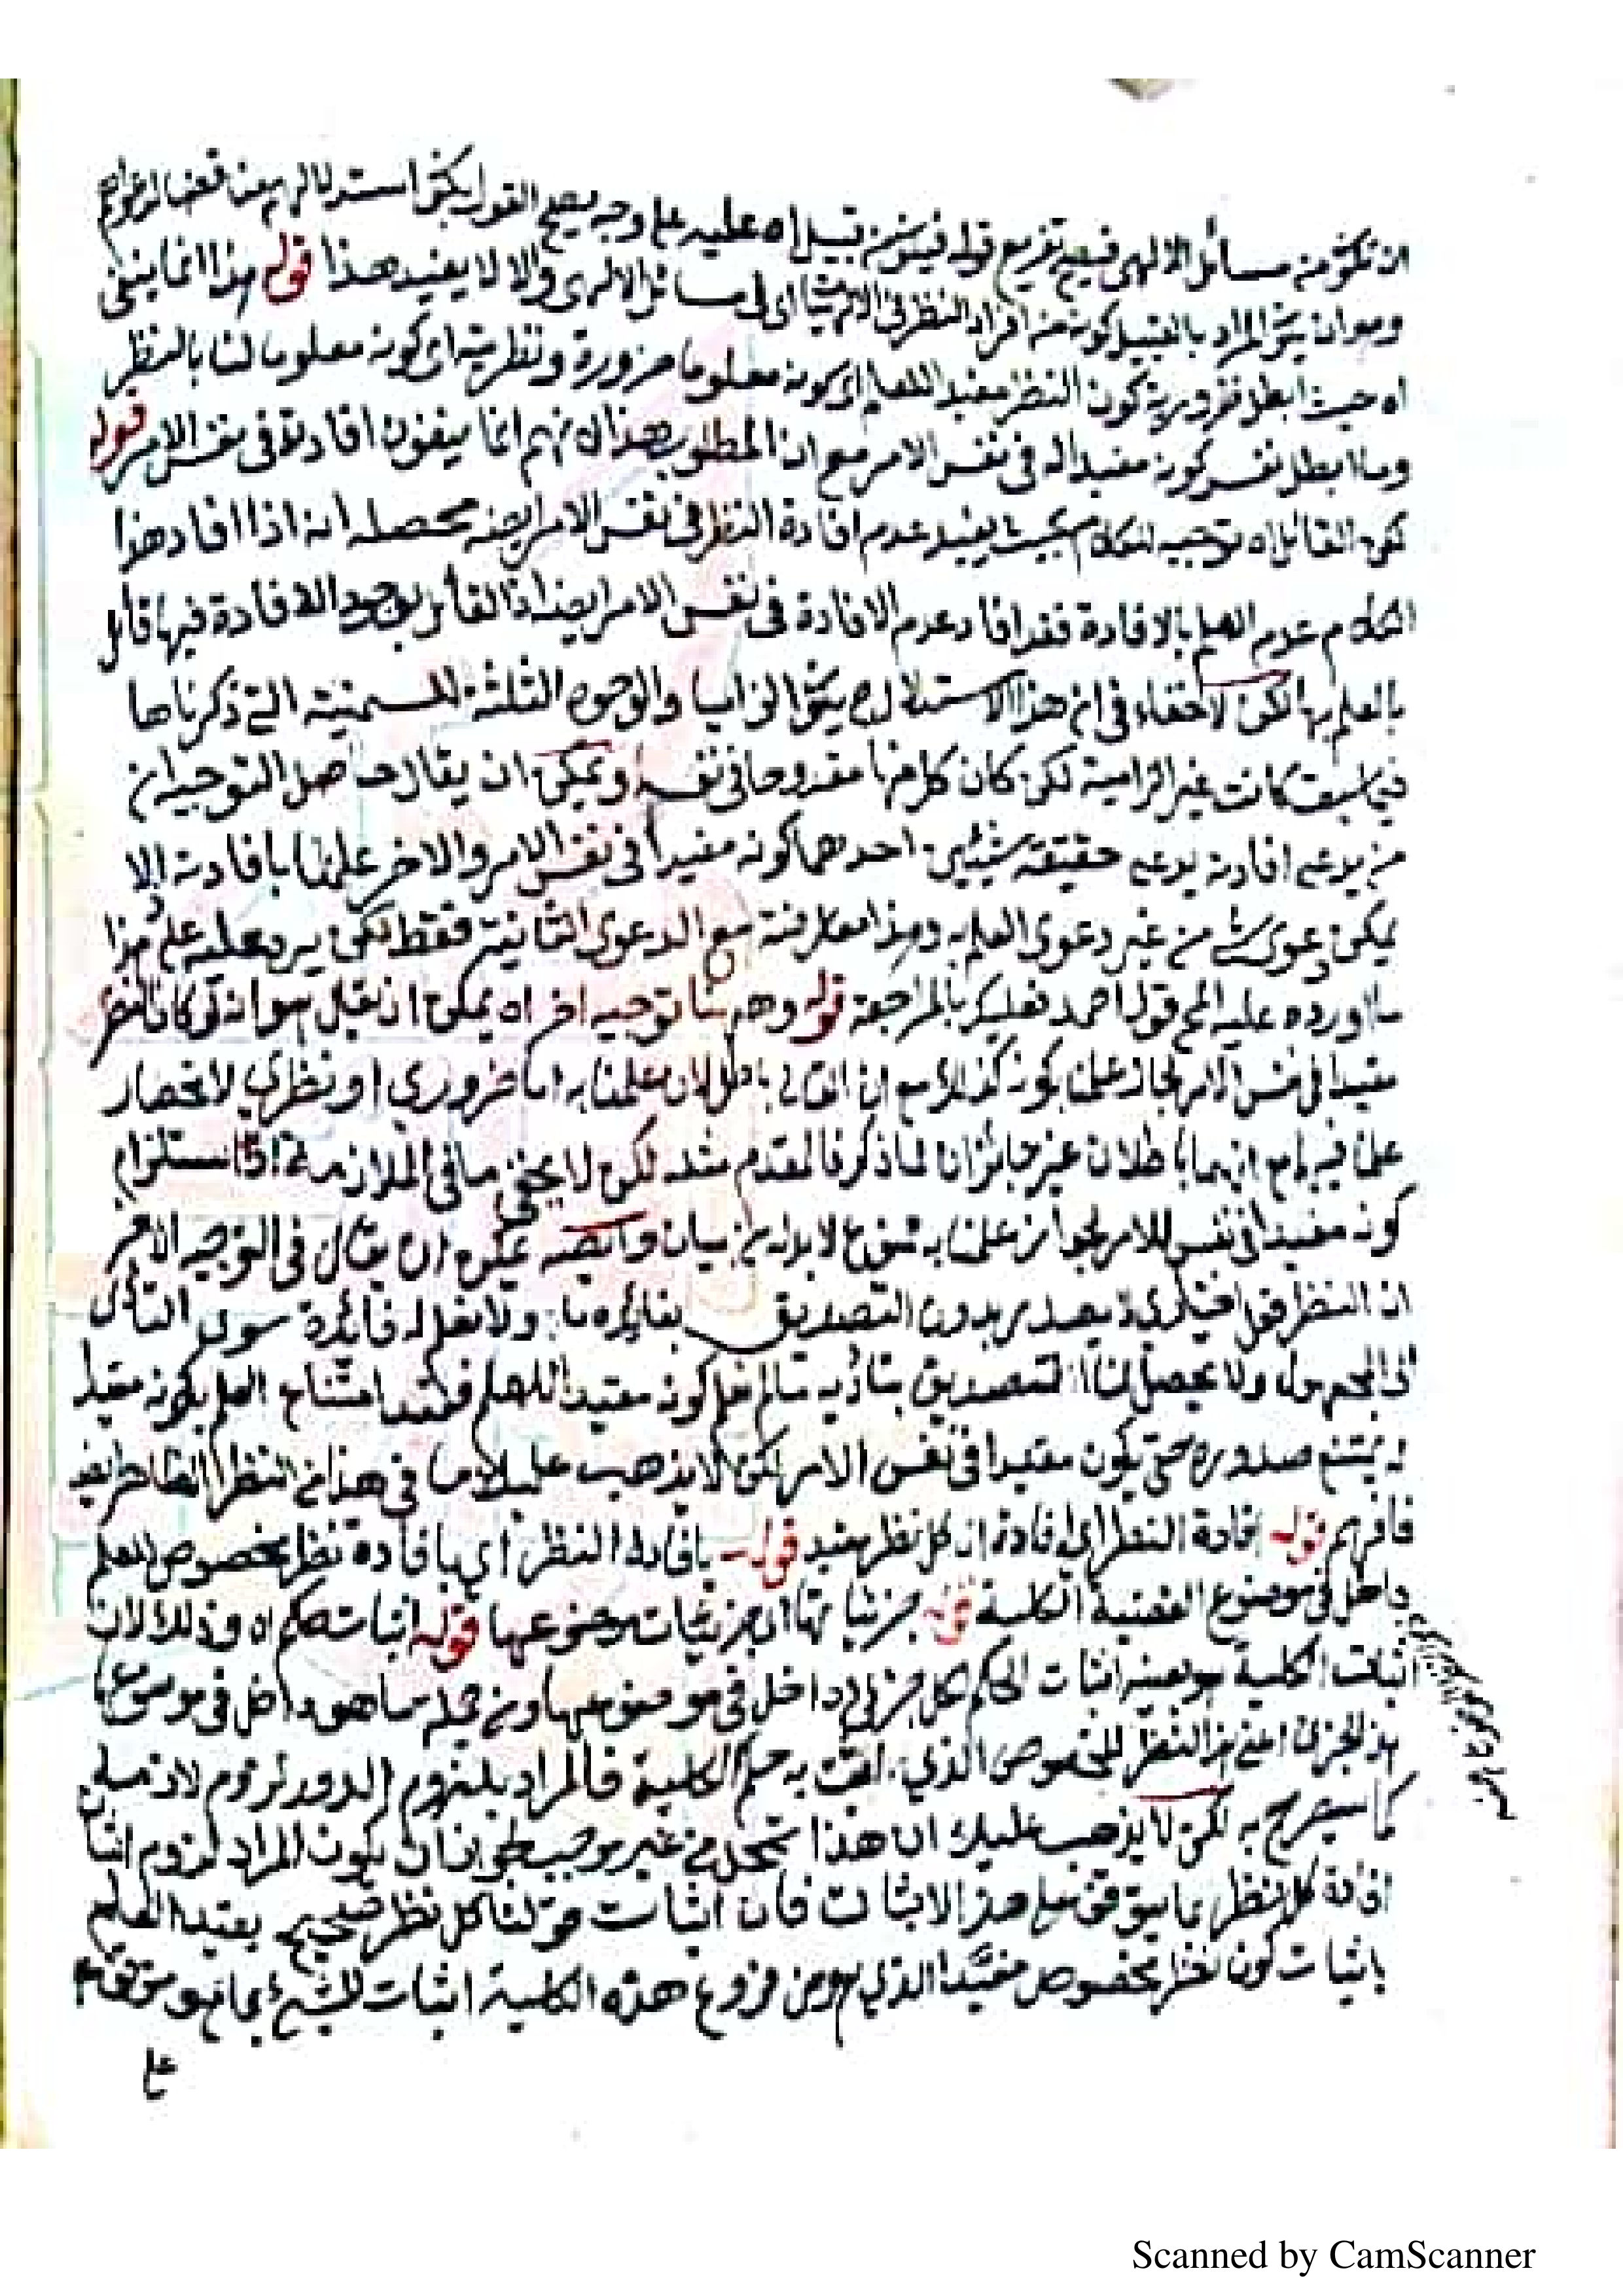 من مسائل الالهى فيصح تفريع قوله اه عليه على وجه يصح القول استدلالهم
وهو ان المراد كونه من افراد النظر فى اى فى مسائل الالهى والا لا يفيد هذا قوله هذا انما ينفى
اه حيث ابطل ضرورية كون النظر مفيدا للعلم اى كونه معلوما ضرورة ونظريته اى كونه معلوما لنا بالنظر
وما ابطل نفس كونه مفيدا له فى نفس الامر مع ان المطلوب هذا لانهم انما ينفون افادته فى نفس الامر قوله
لكن القائل اه توجيه للكلام بحيث يفيد عدم افادة النظر فى نفس الامر ايضا محصله انه اذا افاد هذا
الكلام عدم العلم بالافادة فقد افاد عدم الافادة فى نفس الامر ايضا اذ القائل بوجود الافادة فيها قائل
بالعلم بها لكن لا خفاء فى ان هذا الاستدلال ح الزاميا والوجوه الثلثة للسمنية التى ذكرناها
فيما سبق كانت غير الزامية لكن كان كل منها مقدوحا فى نفسه ويمكن ان يقال حاصل التوجيه ان
من يدعى افادته يدعى حقيقة شيئين احدهما كونه مفيدا فى نفس الامر والاخر علمنا بافادته اذ لا
يمكن دعوى شئ من غير دعوى العلم به وهذا معارضة مع الدعوى الثانية فقط لكن يرد عليه على هذا
ما اورده عليه قول احمد فعليك بالمراجعة قوله وههنا توجيه اخر اه يمكن ان هو انه لو كان النظر
مفيدا فى نفس الامر لجاز علمنا بكونه كذلك مع ان التالى باطل لان علمنا به اما ضرورى او نظرى لانحصار
علمنا فيهما مع انهما باطلان غير جائزان لما ذكرنا فالمقدم مثله لكن لا يخفى ما فى الملازمة اذ استلزام
كونه مفيدا فى نفس الامر لجواز علمنا به ممنوع لا بد له من بيان وايضا يمكن ان يقال فى التوجيه الاخر
ان النظر فعل اختيارى لا يصدر بدون التصديق بفائدة ما ولا نعلم له فائدة سوى التأدى
الى المجهول ولا يحصل لنا التصديق بتأديه ما لم نعلم كونه مفيدا للعلم فعند امتناع العلم بكونه مفيدا
له يمتنع صدوره حتى يكون مفيدا فى نفس الامر لكن لا يذهب عليك ما فى هذا من النظر الظاهر ايضا
فافهم قوله افادة النظر اى افادة ان كل نظر مفيد قوله بافادة النظر اى بافادة نظر مخصوص للعلم
داخل فى موضوع القضية الكلية قوله جزئياتها اى جزئيات موضوعها قوله اثبات حكم اه وذلك لان
اثبات الكلية هو بعينه اثبات الحكم لكل جزئى داخل فى موضوعها ومن جملة ما هو داخل فى موضوعها
هذا الجزئى اعنى هذا النظر المخصوص الذى اثبت به حكم الكلية فالمراد بلزوم الدور لزوم لازمه
كما سيصرح به لكن لا يذهب عليك ان هذا تمحل من غير موجب لجواز ان يكون المراد لزوم اثبات
افادة كل نظر بما يتوقف على هذا الاثبات فان اثبات قولنا كل نظر صحيح يفيد العلم
باثبات كون نظر مخصوص مفيدا الذى هو من فروع هذه الكلية اثبات للشئ بما هو موقوف
على